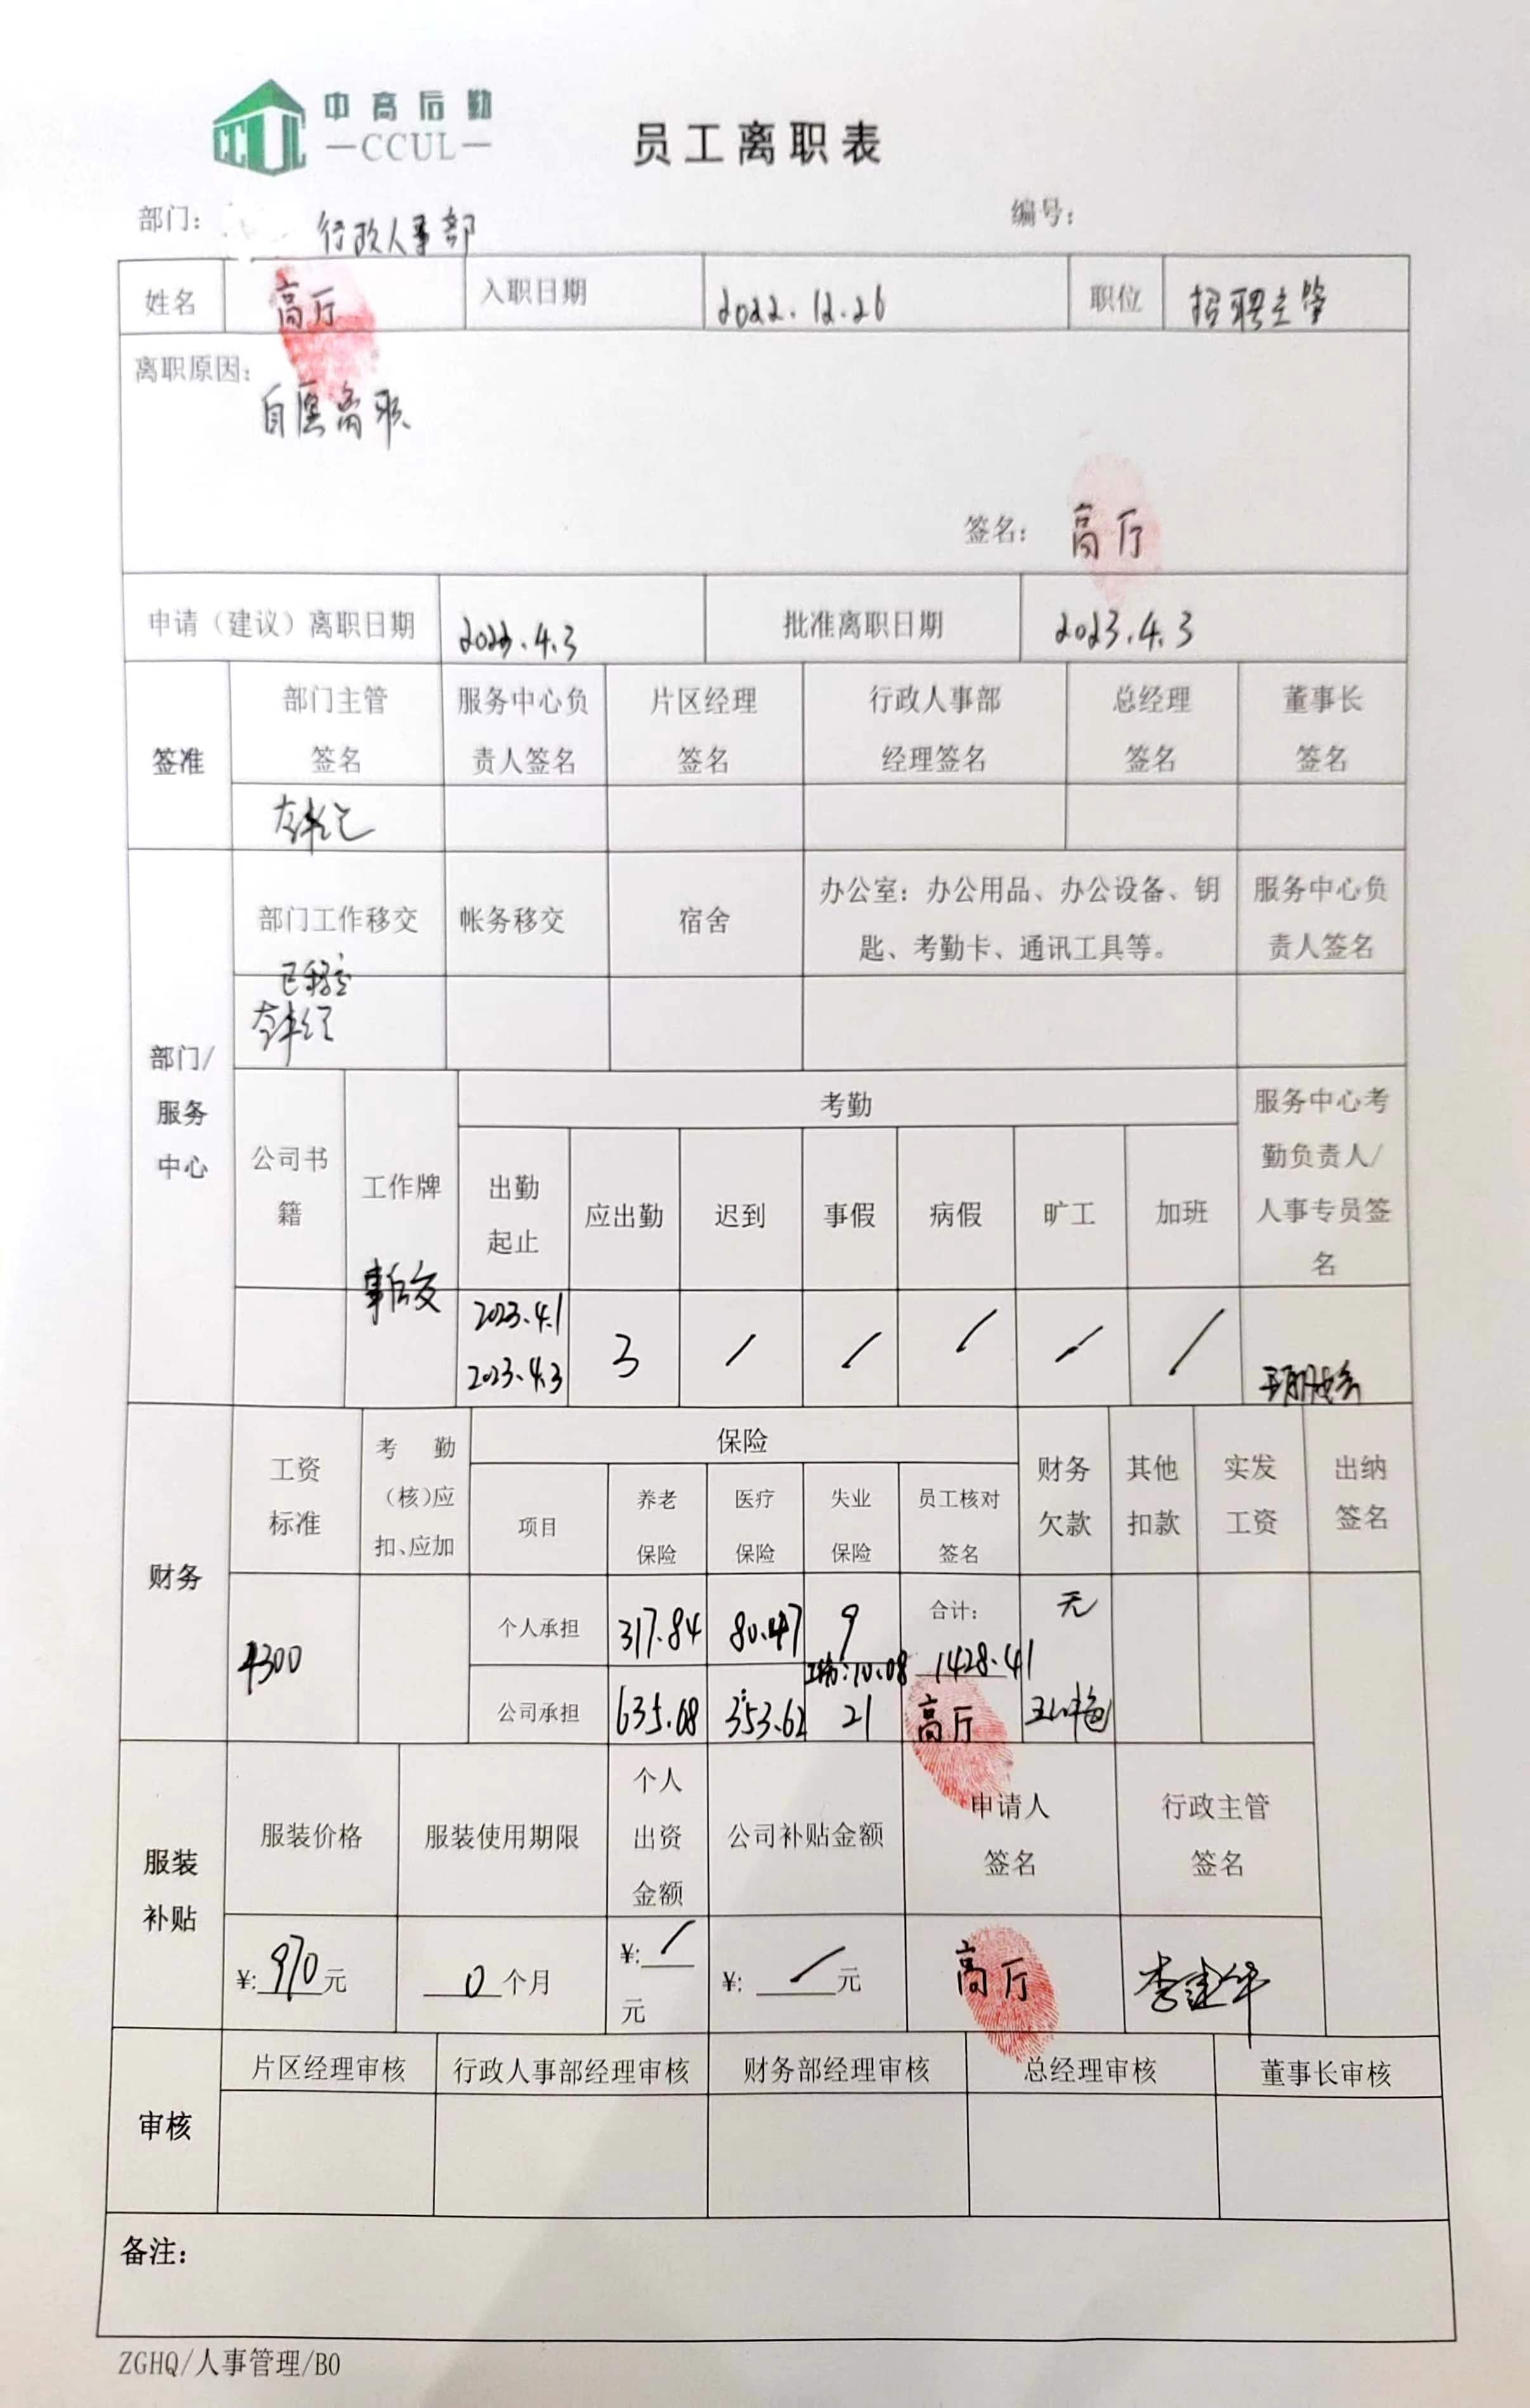 中高后勤
CCUL
员工离职表
部门： 行政人事部 编号：
姓名 高厅 入职日期 2022.12.26 职位 招聘主管
离职原因：
自愿离职
签名： 高厅
申请（建议）离职日期 2023.4.3 批准离职日期 2023.4.3
签准
部门主管签名 服务中心负责人签名 片区经理签名 行政人事部经理签名 总经理签名 董事长签名
部门/服务中心
部门工作移交 帐务移交 宿舍 办公室：办公用品、办公设备、钥匙、考勤卡、通讯工具等。 服务中心负责人签名
公司书籍 工作牌 考勤 服务中心考勤负责人/人事专员签名
出勤起止 应出勤 迟到 事假 病假 旷工 加班
事后交
2023.4.1
2023.4.3 3 / / / / /
财务
工资标准 考勤（核）应扣、应加 保险 财务欠款 其他扣款 实发工资 出纳签名
项目 养老保险 医疗保险 失业保险 员工核对签名
4300
个人承担 317.84 80.47 9 合计： 无
工伤：10.08 1428.41
公司承担 635.68 353.62 21 高厅
服装补贴
服装价格 服装使用期限 个人出资金额 公司补贴金额 申请人签名 行政主管签名
¥:970元 0个月 ¥:/元 ¥:/元 高厅 李建华
审核
片区经理审核 行政人事部经理审核 财务部经理审核 总经理审核 董事长审核
备注：
ZGHQ/人事管理/B0